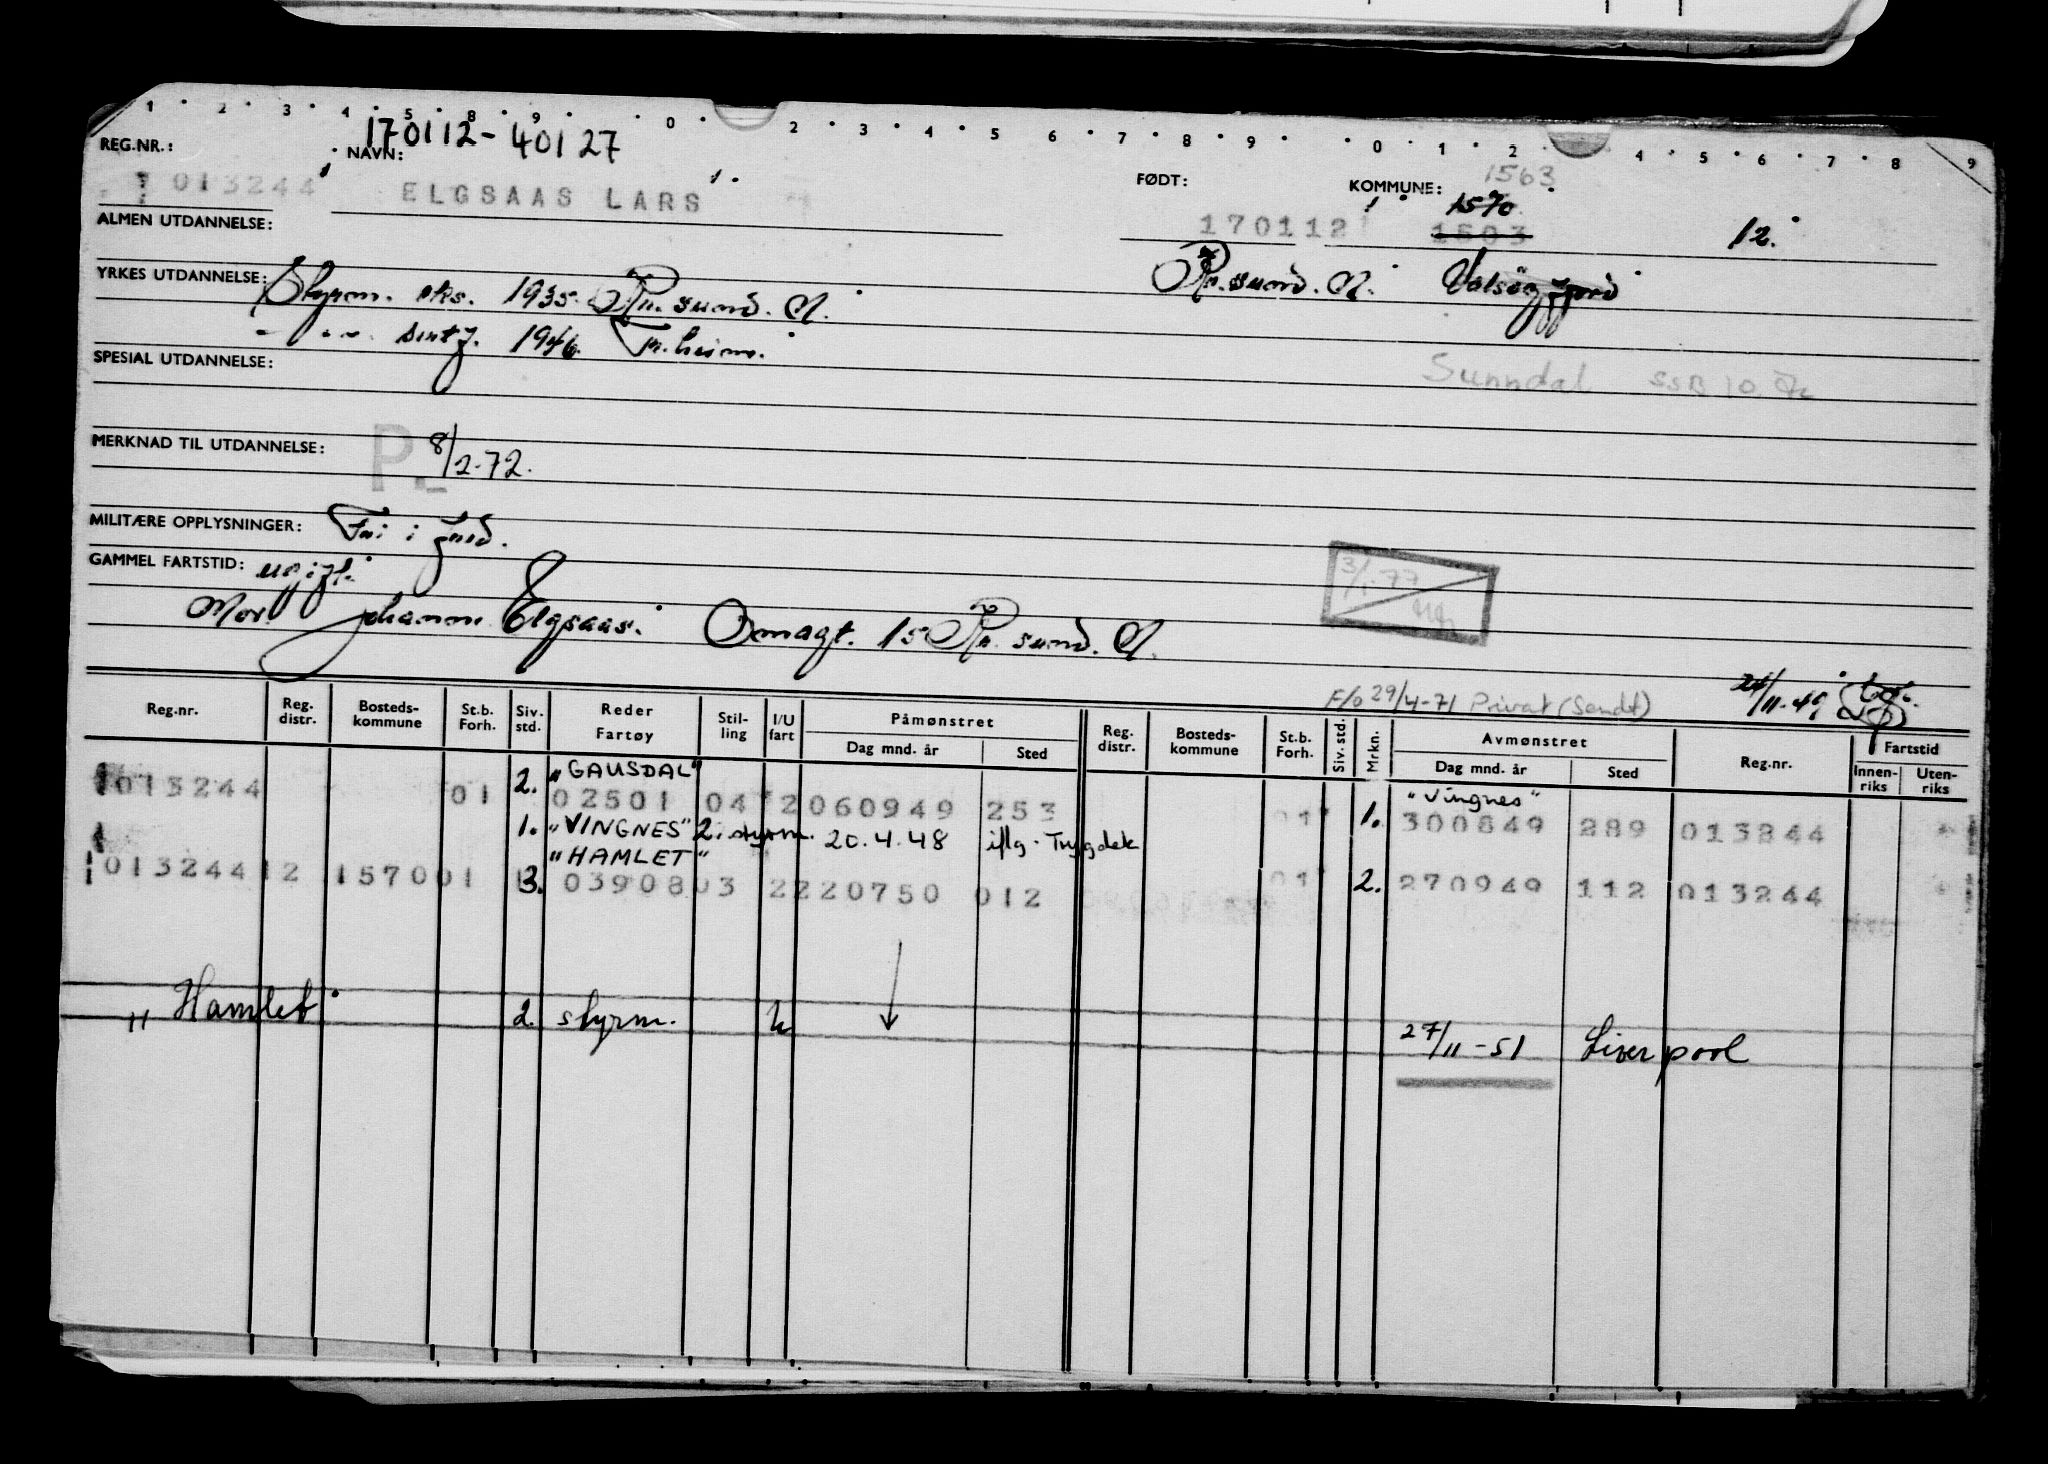 1 2 3 4 5 8 9 0 2 3 4 5 6 7 8 9 0 1 2 4 5 6 7 8 9
170112-40127
REG.NR.: NAVN: FØDT: KOMMUNE: 1563
013244 ELGSAAS LARS 170112 1570 1503 12.
ALMEN UTDANNELSE:
Kr.sund. N. Valsøyfjord
YRKES UTDANNELSE: Styrm. eks. 1935. Kr. sund. N.
1946. Tr.heim.
SPESIAL UTDANNELSE:
Sunndal SSB 10.
MERKNAD TIL UTDANNELSE: P. 8/2-72.
MILITÆRE OPPLYSNINGER: Fri i fred.
GAMMEL FARTSTID: 3/1-77
Mor Johanne Elgsaas. Omagt. 15 Kr. sund. N.
F/o 29/4-71 Privat (Sendt) /11-49
Reg.nr. Reg. distr. Bosteds-kommune St.b. Forh. Siv. std. Reder Fartøy Stil-ling I/U fart Påmønstret Dag mnd. år Sted Reg. distr. Bosteds-kommune St.b. Forh. Siv. std. Mrkn. Avmønstret Dag mnd. år Sted Reg.nr. Fartstid Innen-riks Uten-riks
"GAUSDAL" "Vingnes"
013244 01 2. 02501 04 2 060949 253 01 1. 300849 289 013244
1. "VINGNES" 2. styrm. 20.4.48 iflg. Trygdek
"HAMLET"
013244 12 1570 01 3. 03908 03 2 220750 012 01 2. 270949 112 013244
"Hamlet" 2. styrm. U 27/11-51 Liverpool